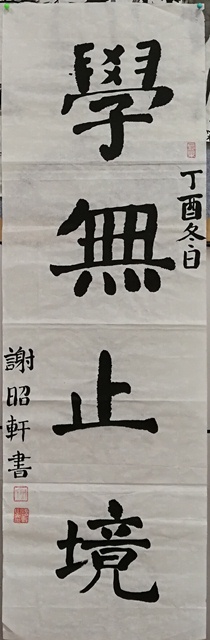 丁酉冬日
學無止境
謝昭軒書